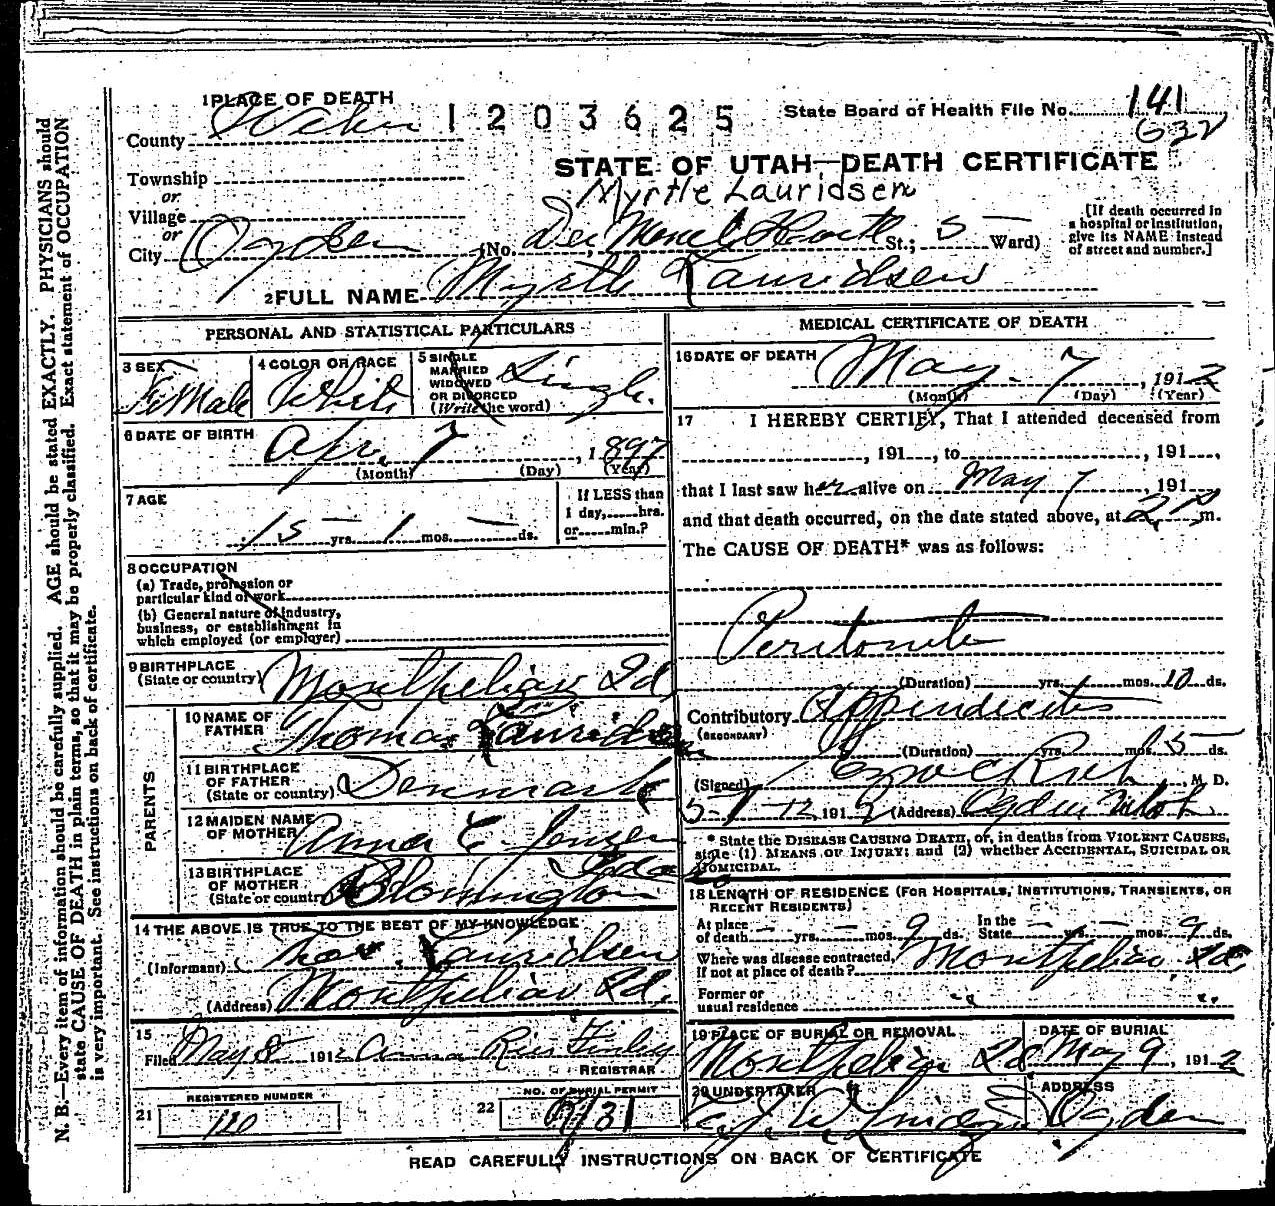 1 PLACE OF DEATH
County Weber
1203625
State Board of Health File No. 141
632
STATE OF UTAH—DEATH CERTIFICATE
Township
or
Village
or
City Ogden
Myrtle Lauridsen
(No. Dee St.; 5 Ward)
[If death occurred in
a hospital or institution,
give its NAME instead
of street and number.]
2 FULL NAME Myrtle Lauridsen
PERSONAL AND STATISTICAL PARTICULARS
3 SEX
Female
4 COLOR OR RACE
White
5 SINGLE
MARRIED
WIDOWED
OR DIVORCED
(Write the word)
Single.
6 DATE OF BIRTH
Apr. 7, 1897
(Month) (Day) (Year)
7 AGE
15 yrs. 1 mos. — ds.
If LESS than
1 day, hrs.
or min.?
8 OCCUPATION
(a) Trade, profession or
particular kind of work
(b) General nature of industry,
business, or establishment in
which employed (or employer)
9 BIRTHPLACE
(State or country) Montpeliar Id
PARENTS
10 NAME OF
FATHER Thomas Lauridsen
11 BIRTHPLACE
OF FATHER
(State or country) Denmark
12 MAIDEN NAME
OF MOTHER Anna C Jensen
13 BIRTHPLACE
OF MOTHER
(State or country) Bloomington Idaho
14 THE ABOVE IS TRUE TO THE BEST OF MY KNOWLEDGE
(Informant) Thos. Lauridsen
(Address) Montpeliar Id.
15
Filed May 8 1912 Anna Ries Finley
REGISTRAR
21
REGISTERED NUMBER
22
NO. OF BURIAL PERMIT
MEDICAL CERTIFICATE OF DEATH
16 DATE OF DEATH
May 7, 1912
(Month) (Day) (Year)
17 I HEREBY CERTIFY, That I attended deceased from
, 191 , to , 191 ,
that I last saw her alive on May 7, 191
and that death occurred, on the date stated above, at 2 P m.
The CAUSE OF DEATH* was as follows:
Peritonitis
(Duration) yrs. mos. 10 ds.
Contributory Appendicitis
(SECONDARY)
(Duration) yrs. mos. 5 ds.
(Signed) M. D.
191 (Address) Ogden Utah.
* State the DISEASE CAUSING DEATH, or, in deaths from VIOLENT CAUSES,
state (1) MEANS OF INJURY; and (2) whether ACCIDENTAL, SUICIDAL OR
HOMICIDAL.
18 LENGTH OF RESIDENCE (FOR HOSPITALS, INSTITUTIONS, TRANSIENTS, OR
RECENT RESIDENTS)
At place
of death — yrs. — mos. 9 ds.
In the
State — yrs. — mos. 9 ds.
Where was disease contracted,
if not at place of death? Montpeliar Id.
Former or
usual residence " "
19 PLACE OF BURIAL OR REMOVAL
Montpeliar Id
DATE OF BURIAL
May 9, 1912
20 UNDERTAKER
ADDRESS
Ogden
READ CAREFULLY INSTRUCTIONS ON BACK OF CERTIFICATE
N. B.—Every item of information should be carefully supplied. AGE should be stated EXACTLY. PHYSICIANS should
state CAUSE OF DEATH in plain terms, so that it may be properly classified. Exact statement of OCCUPATION
is very important. See instructions on back of certificate.